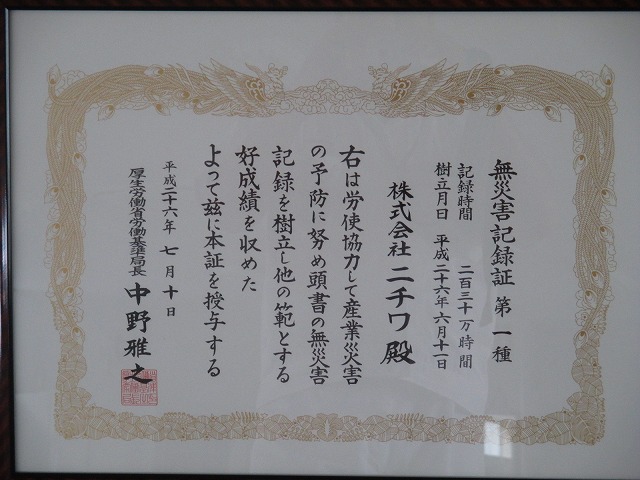 無災害記録証 第一種
記録時間 二百三十万時間
樹立月日 平成二十六年六月十一日
株式会社ニチワ殿
右は労使協力して産業災害
の予防に努め頭書の無災害
記録を樹立し他の範とする
好成績を収めた
よって茲に本証を授与する
平成二十六年七月十日
厚生労働省労働基準局長 中野雅之